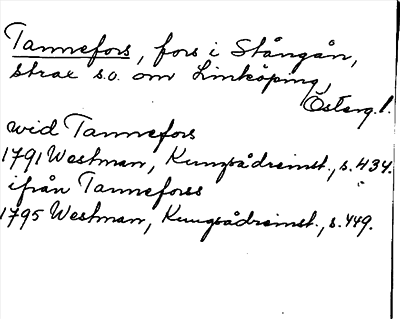 Tannefors, fors i Stångån,
strax s.o. om Linköping,
Österg.l.
wid Tannefors
1791 Westman, Kungsådreinst., s. 434.
ifrån Tannefors
1795 Westman, Kungsådreinst., s. 449.